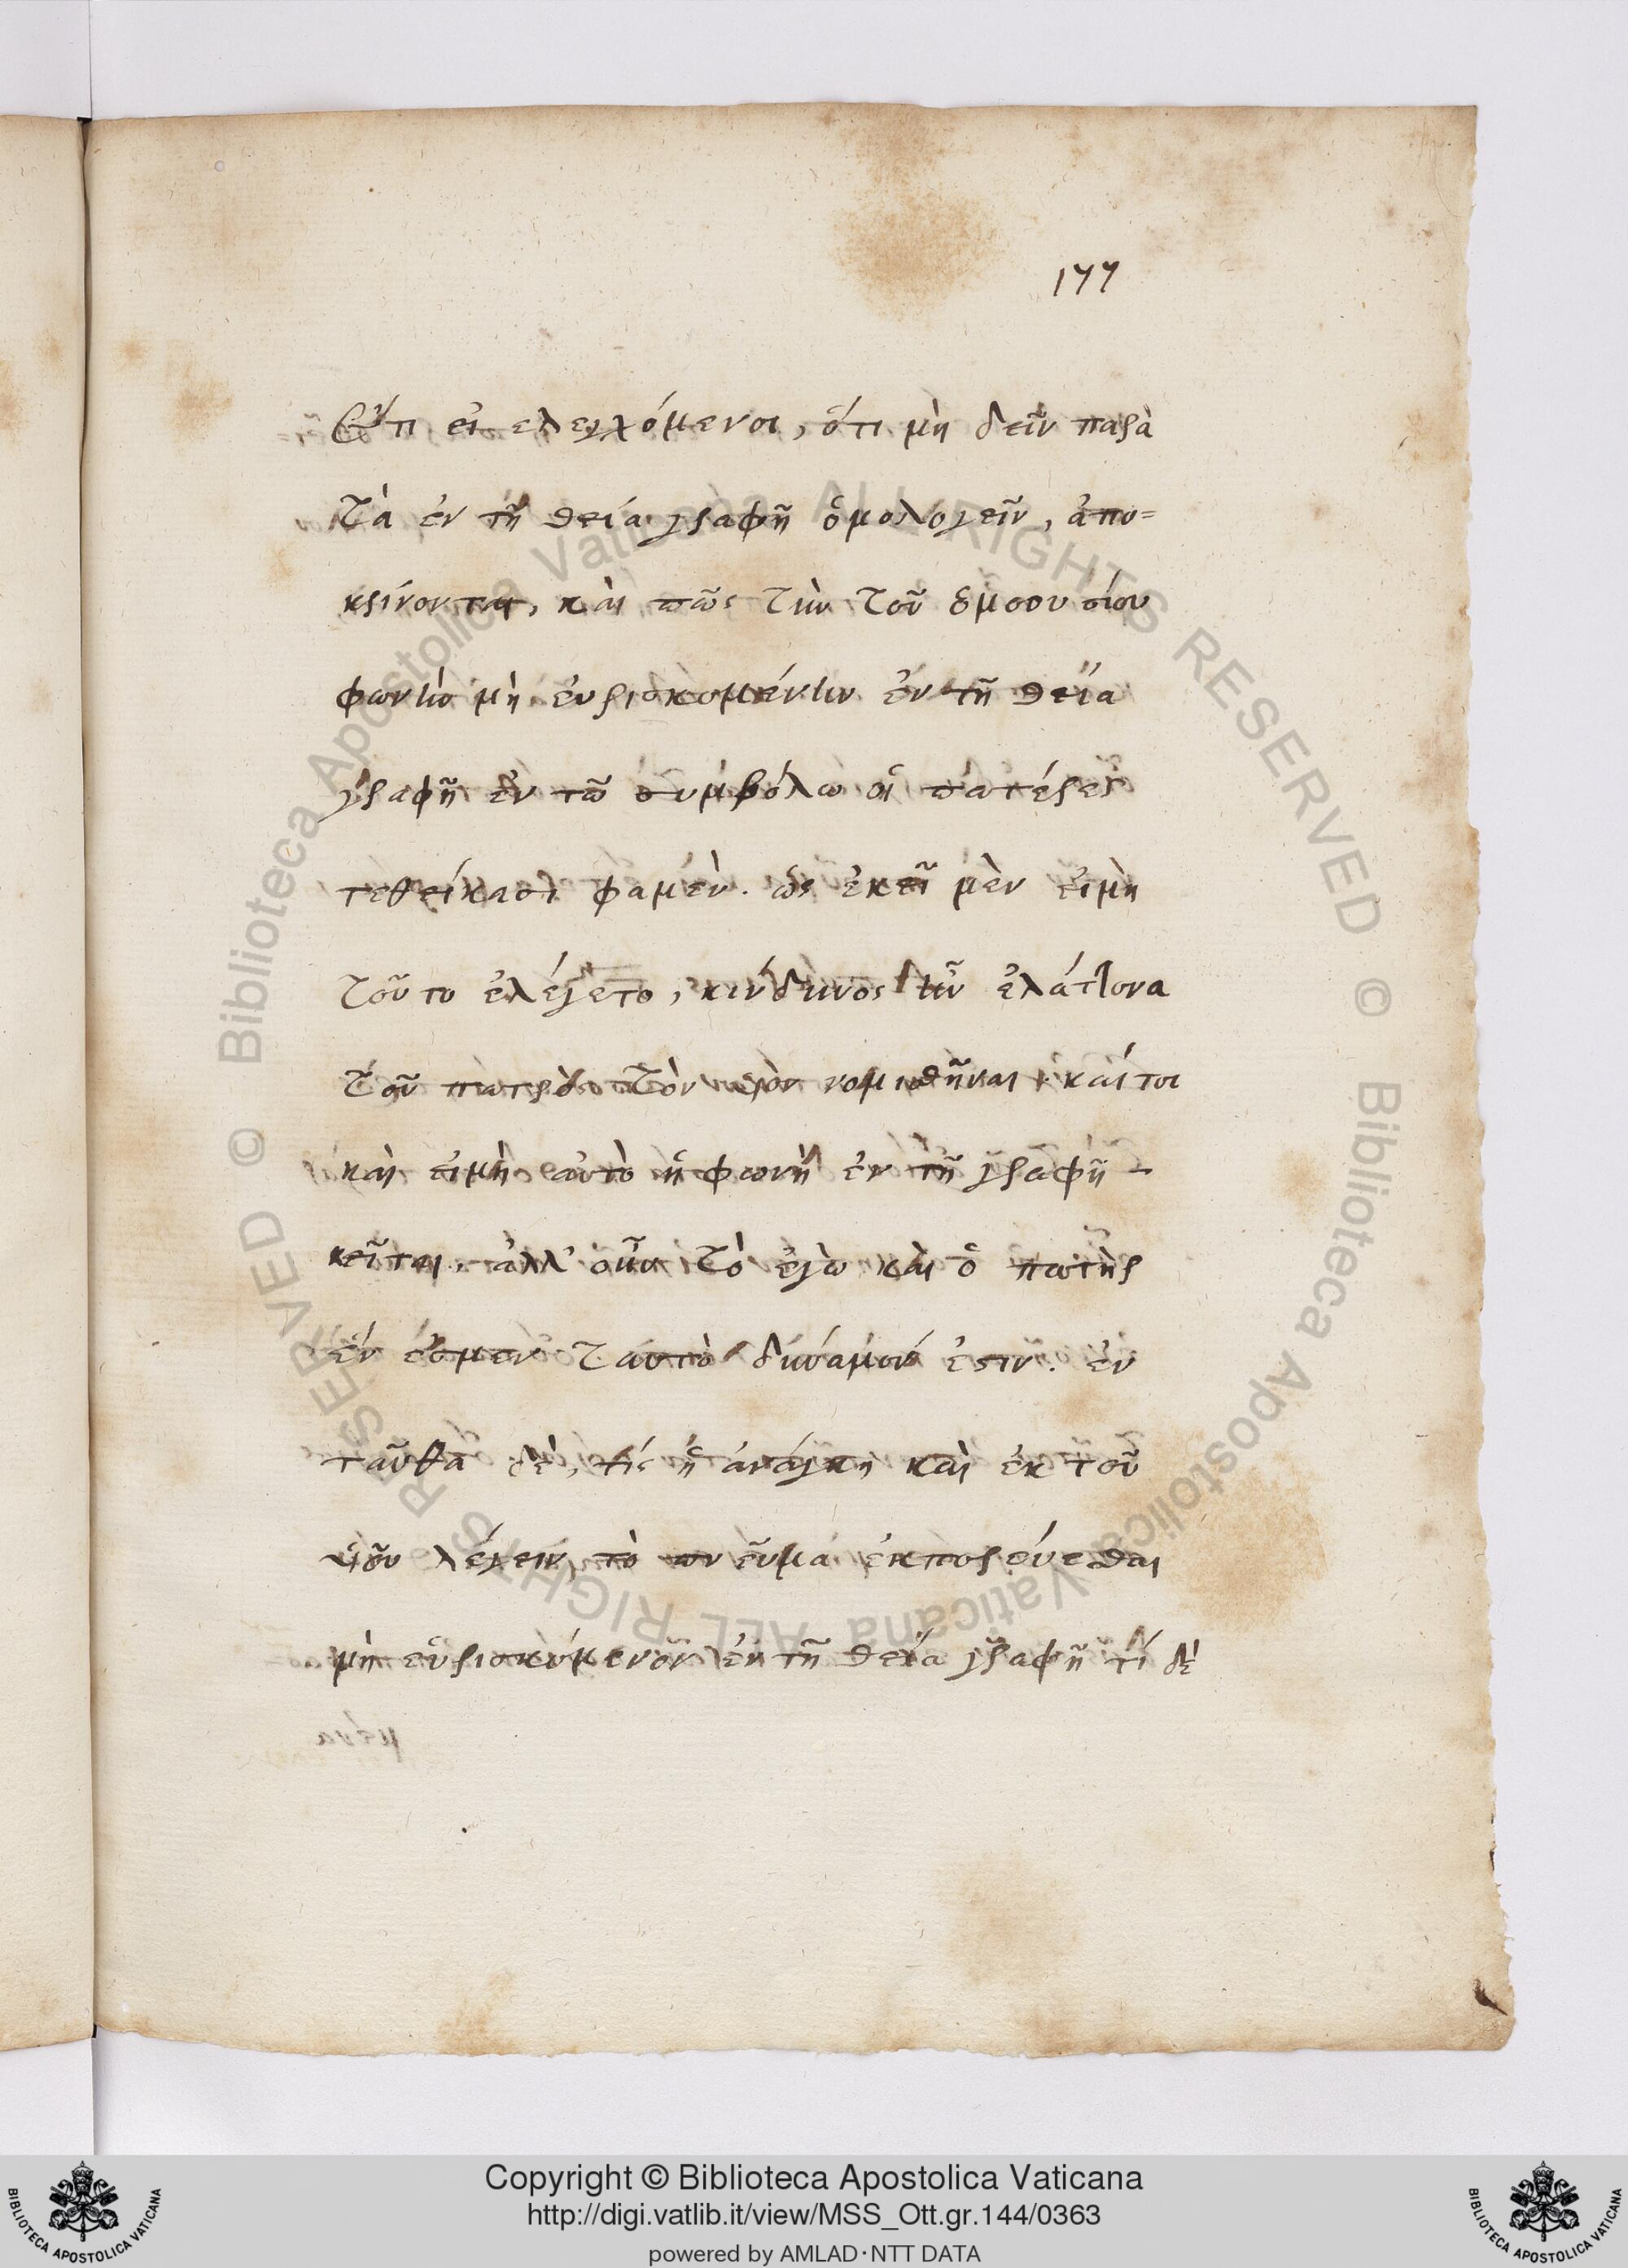 177
Ὅτι εἰ ελεγχόμενοι, ὅτι μὴ δεῖν παρὰ
τὰ ἐν τῆ θεία γραφῆ ὁμολογεῖν, ἀπο=
κρίνονται, καὶ πῶς τὴν τοῦ ὁμοουσίου
φωνὴν μὴ ἑυρισκομένην ἐν τῆ θεία
γραφῆ ἐν τῶ συμβόλω οἱ πατέρες
τεθείκασι φαμὲν. ὡς ἐκεῖ μὲν εἰμὴ
τοῦτο ἐλέγετο, κίνδυνος ἦν ἐλάττονα
τοῦ πατρὸς τὸν υἱὸν νομισθῆναι καίτοι
καὶ εἰμὴ αὐτὸ ἡ φωνὴ ἐν τῆ γραφῆ
κεῖται. ἀλλ' οὖν τὸ ἐγὼ καὶ ὁ πατὴρ
ἕν ἐσμεν ταυτὸ δυνάμενόν ἐστιν. ἐν
ταῦθα δὲ, τίς ἡ ἀνάγκη καὶ ἐκ τοῦ
υἱοῦ λέγειν, τὸ πνεῦμα ἐκπορεύεσθαι
μὴ εὑρισκόμενον ἐν τῆ θεία γραφῆ τί δὲ
Copyright © Biblioteca Apostolica Vaticana
http://digi.vatlib.it/view/MSS_Ott.gr.144/0363
powered by AMLAD·NTT DATA
BIBLIOTECA APOSTOLICA VATICANA
BIBLIOTECA APOSTOLICA VATICANA
© Biblioteca Apostolica Vaticana ALL RIGHTS RESERVED
© Biblioteca Apostolica Vaticana ALL RIGHTS RESERVED